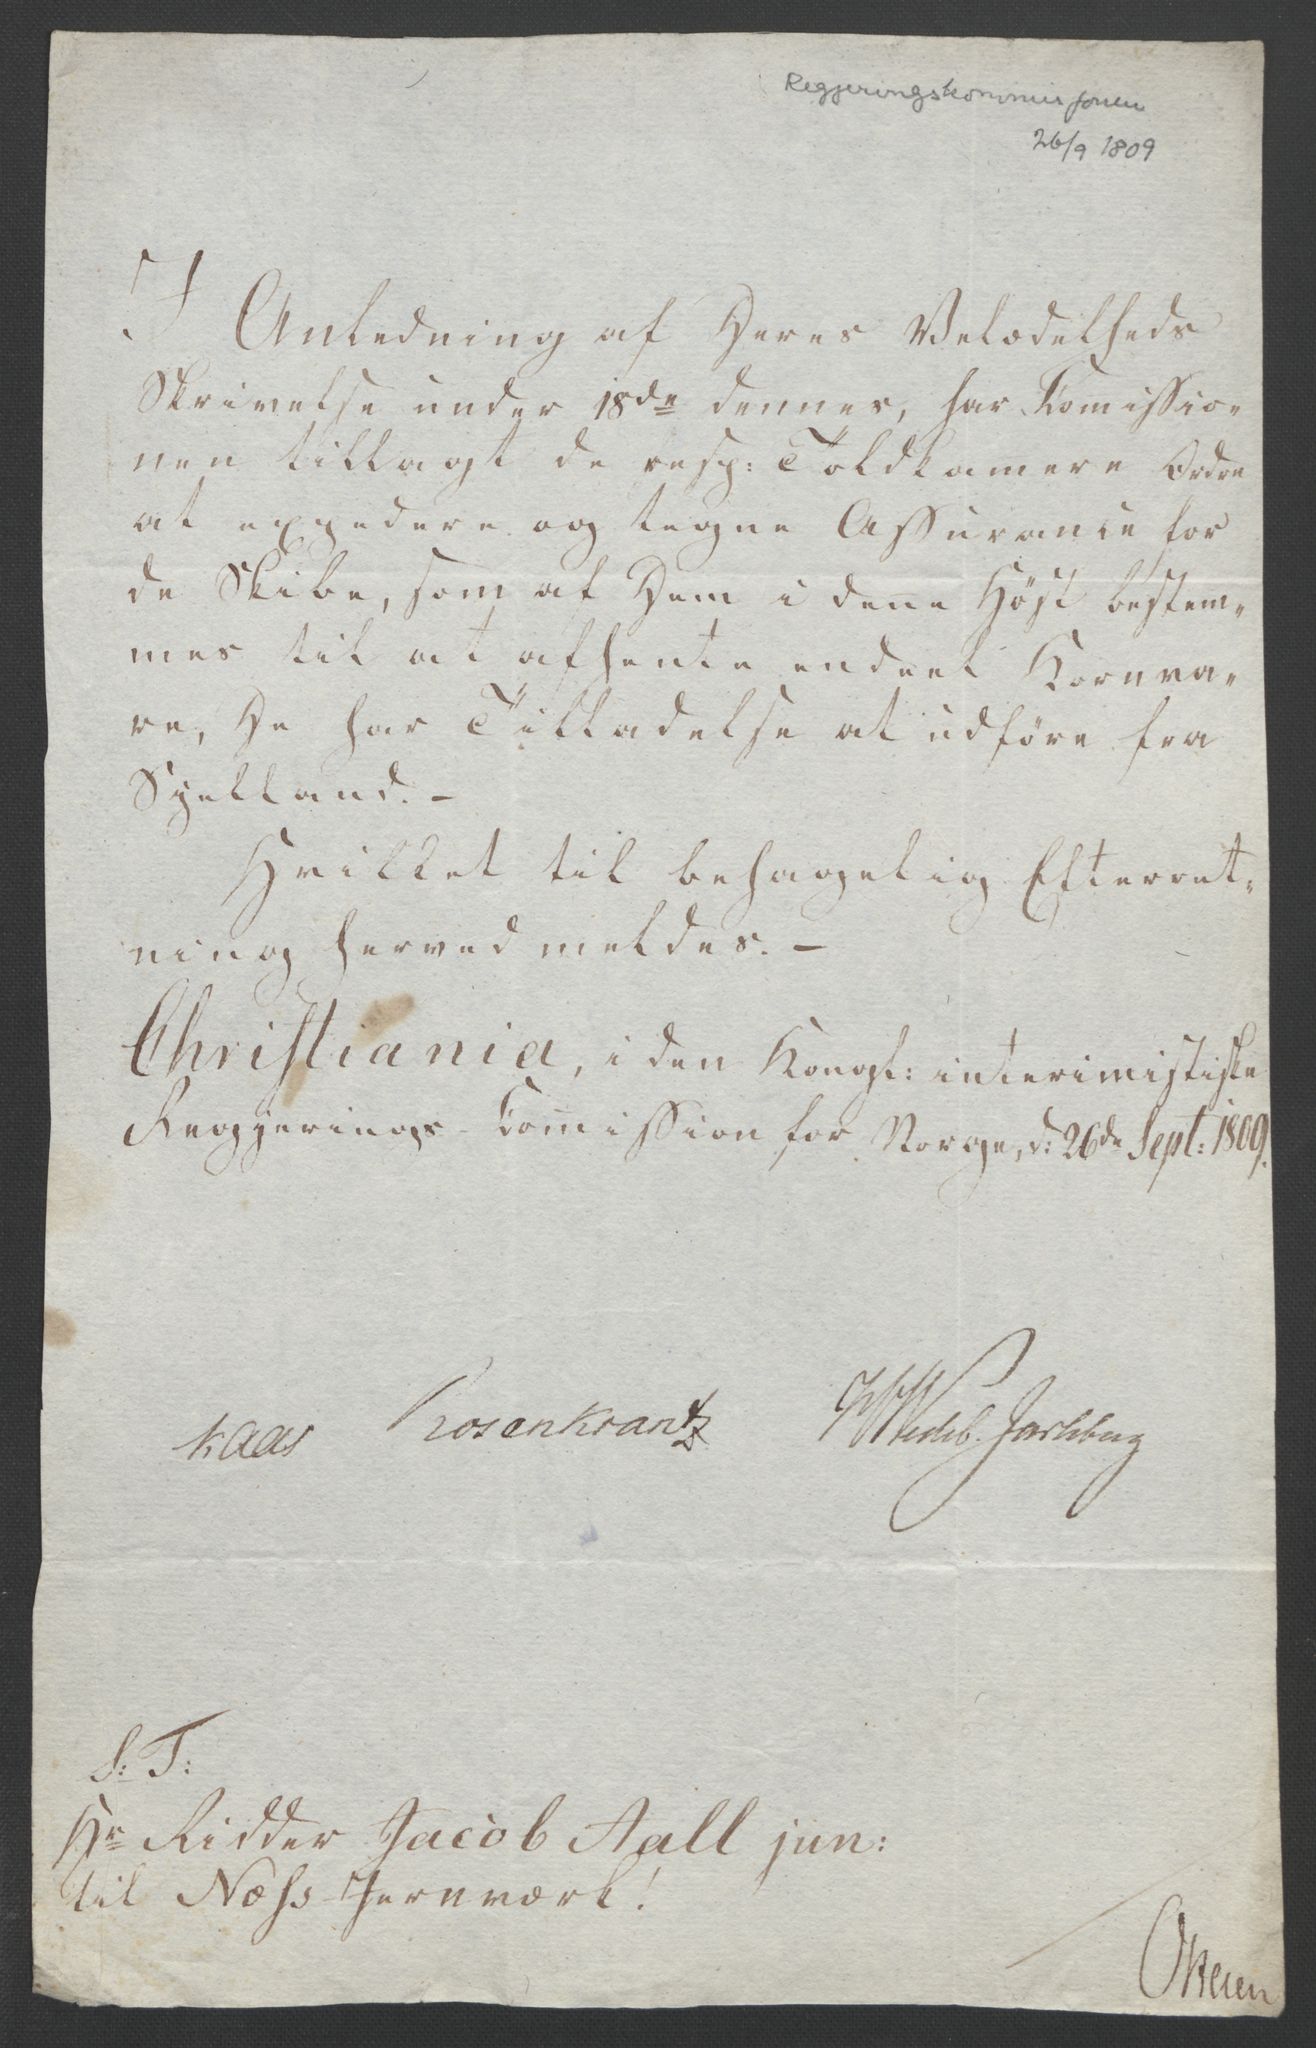 Regjeringskommisjonen
26/9 1809
I Anledning af Deres Velædelheds
Skrivelse under 18de dennes, har Komissio-
nen tillagt de resp: Toldkamere Ordre
at expedere og tegne Assurance for
de Skibe, som af Dem i denne Høst bestem-
mes til at afhente endeel Kornva-
re, De har Tilladelse at udföre fra
Sjelland. -
Hvilket til behagelig Efterret-
ning herved meldes. -
Christiania, i den Kongl: interimistiske
Regjerings-Komission for Norge, d: 26de Sept: 1809.
Kaas Rosenkrantz Wedel Jarlsberg
S: T:
Hr Ridder Jacob Aall jun:
til Næss Jernværk!